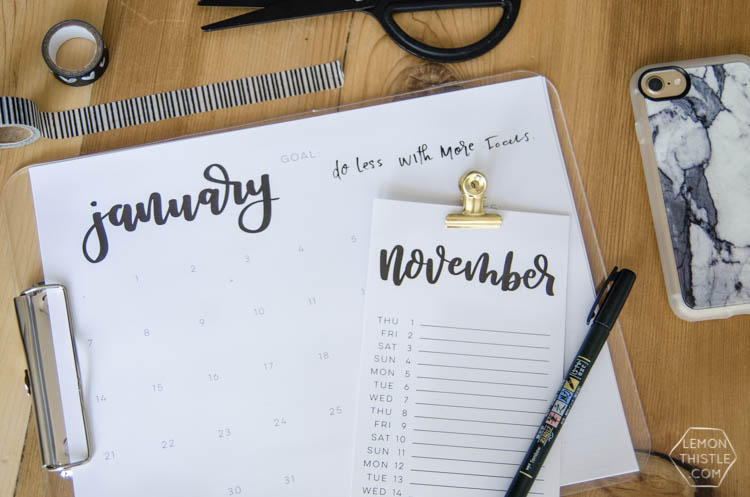 GOAL:
do Less with More Focus.
january
1 2 3 4 5
7 8 9 10 11
14 15 16 17 18
21 22 23 24 25
30 31
november
THU 1
FRI 2
SAT 3
SUN 4
MON 5
TUE 6
WED 7
THU 8
FRI 9
SAT 10
SUN 11
MON 12
TUE 13
WED 14
LEMON
THISTLE
.COM